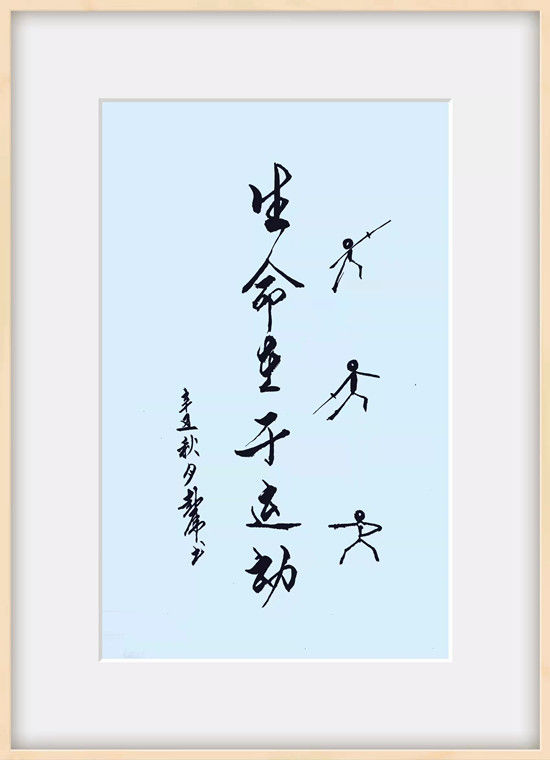 生命在于运动
辛丑秋月书